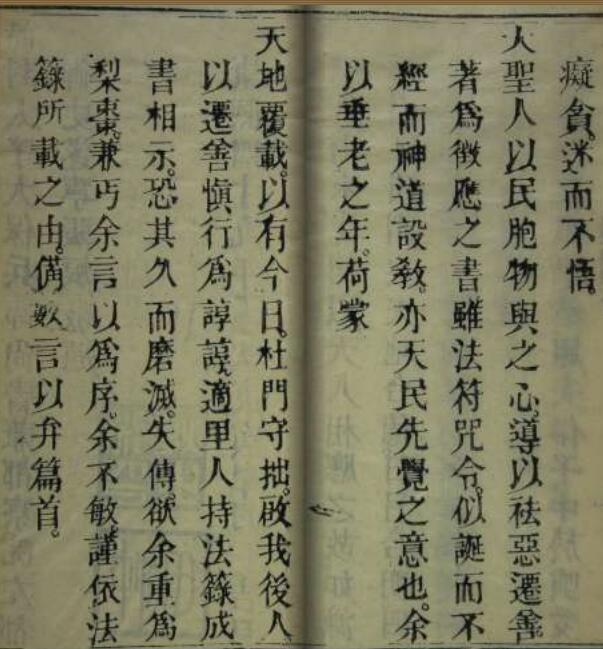 癡貪。迷而不悟。
大聖人以民胞物與之心。導以祛惡遷善。
著爲徵應之書雖法符咒令。似誕而不
經而神道設教。亦天民先覺之意也。余
以垂老之年。荷蒙
天地覆載。以有今日。杜門守拙。啟我後人
以遷善慎行爲諄諄。適里人持法籙成
書相示。恐其久而磨滅。失傳。欲余重爲
梨棗。兼丐余言以爲序。余不敏。謹依法
籙所載之由。備數言以弁篇首。